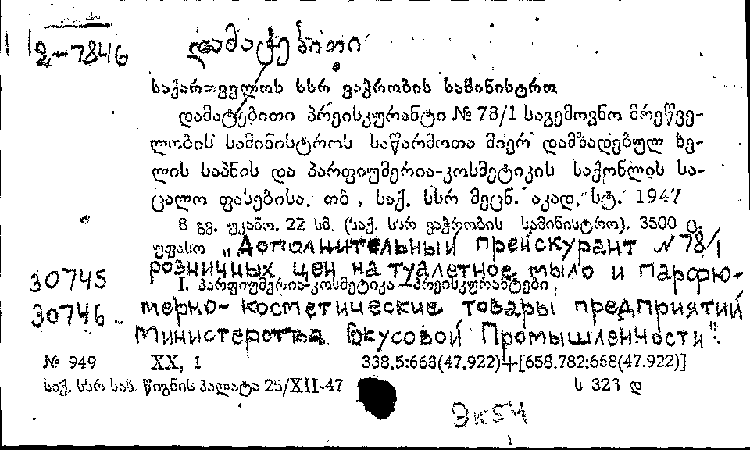 2-7846 დამატებითი
საქართველოს სსრ ვაჭრობის სამინისტრო
დამატებითი პრეისკურანტი № 78/1 საგემოვნო მრეწვე-
ლობის სამინისტროს საწარმოთა მიერ დამზადებულ ხე-
ლის საპნის და პარფიუმერია-კოსმეტიკის საქონლის სა-
ცალო ფასებისა. თბ., საქ. სსრ მეცნ. აკად. სტ. 1947
8 გვ. უკანო. 22 სმ. (საქ. სსრ ვაჭრობის სამინისტრო). 3500 ც.
უფასო „Дополнительный прейскурант № 78/1
30745 розничных цен на туалетное мыло и парфю-
I. პარფიუმერია-კოსმეტიკა—პრეისკურანტები
30746 мерно-косметические товары предприятий
Министерства Вкусовой Промышленности".
№ 949 XX, 1 338.5:668(47.922)+[658.782:668(47.922)]
საქ. სსრ სახ. წიგნის პალატა 25/XII-47 ს 323 დ